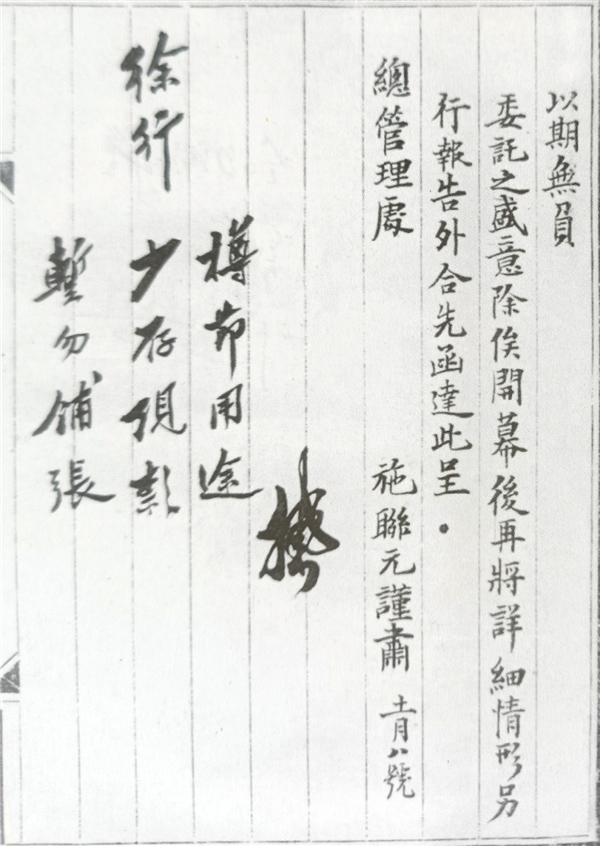 以期無負
委託之盛意除俟開幕後再將詳細情形另
行報告外合先函達此呈。
總管理處 施聯元謹肅 十一月八號
撙節用途
徐行 少存現款
暫勿鋪張